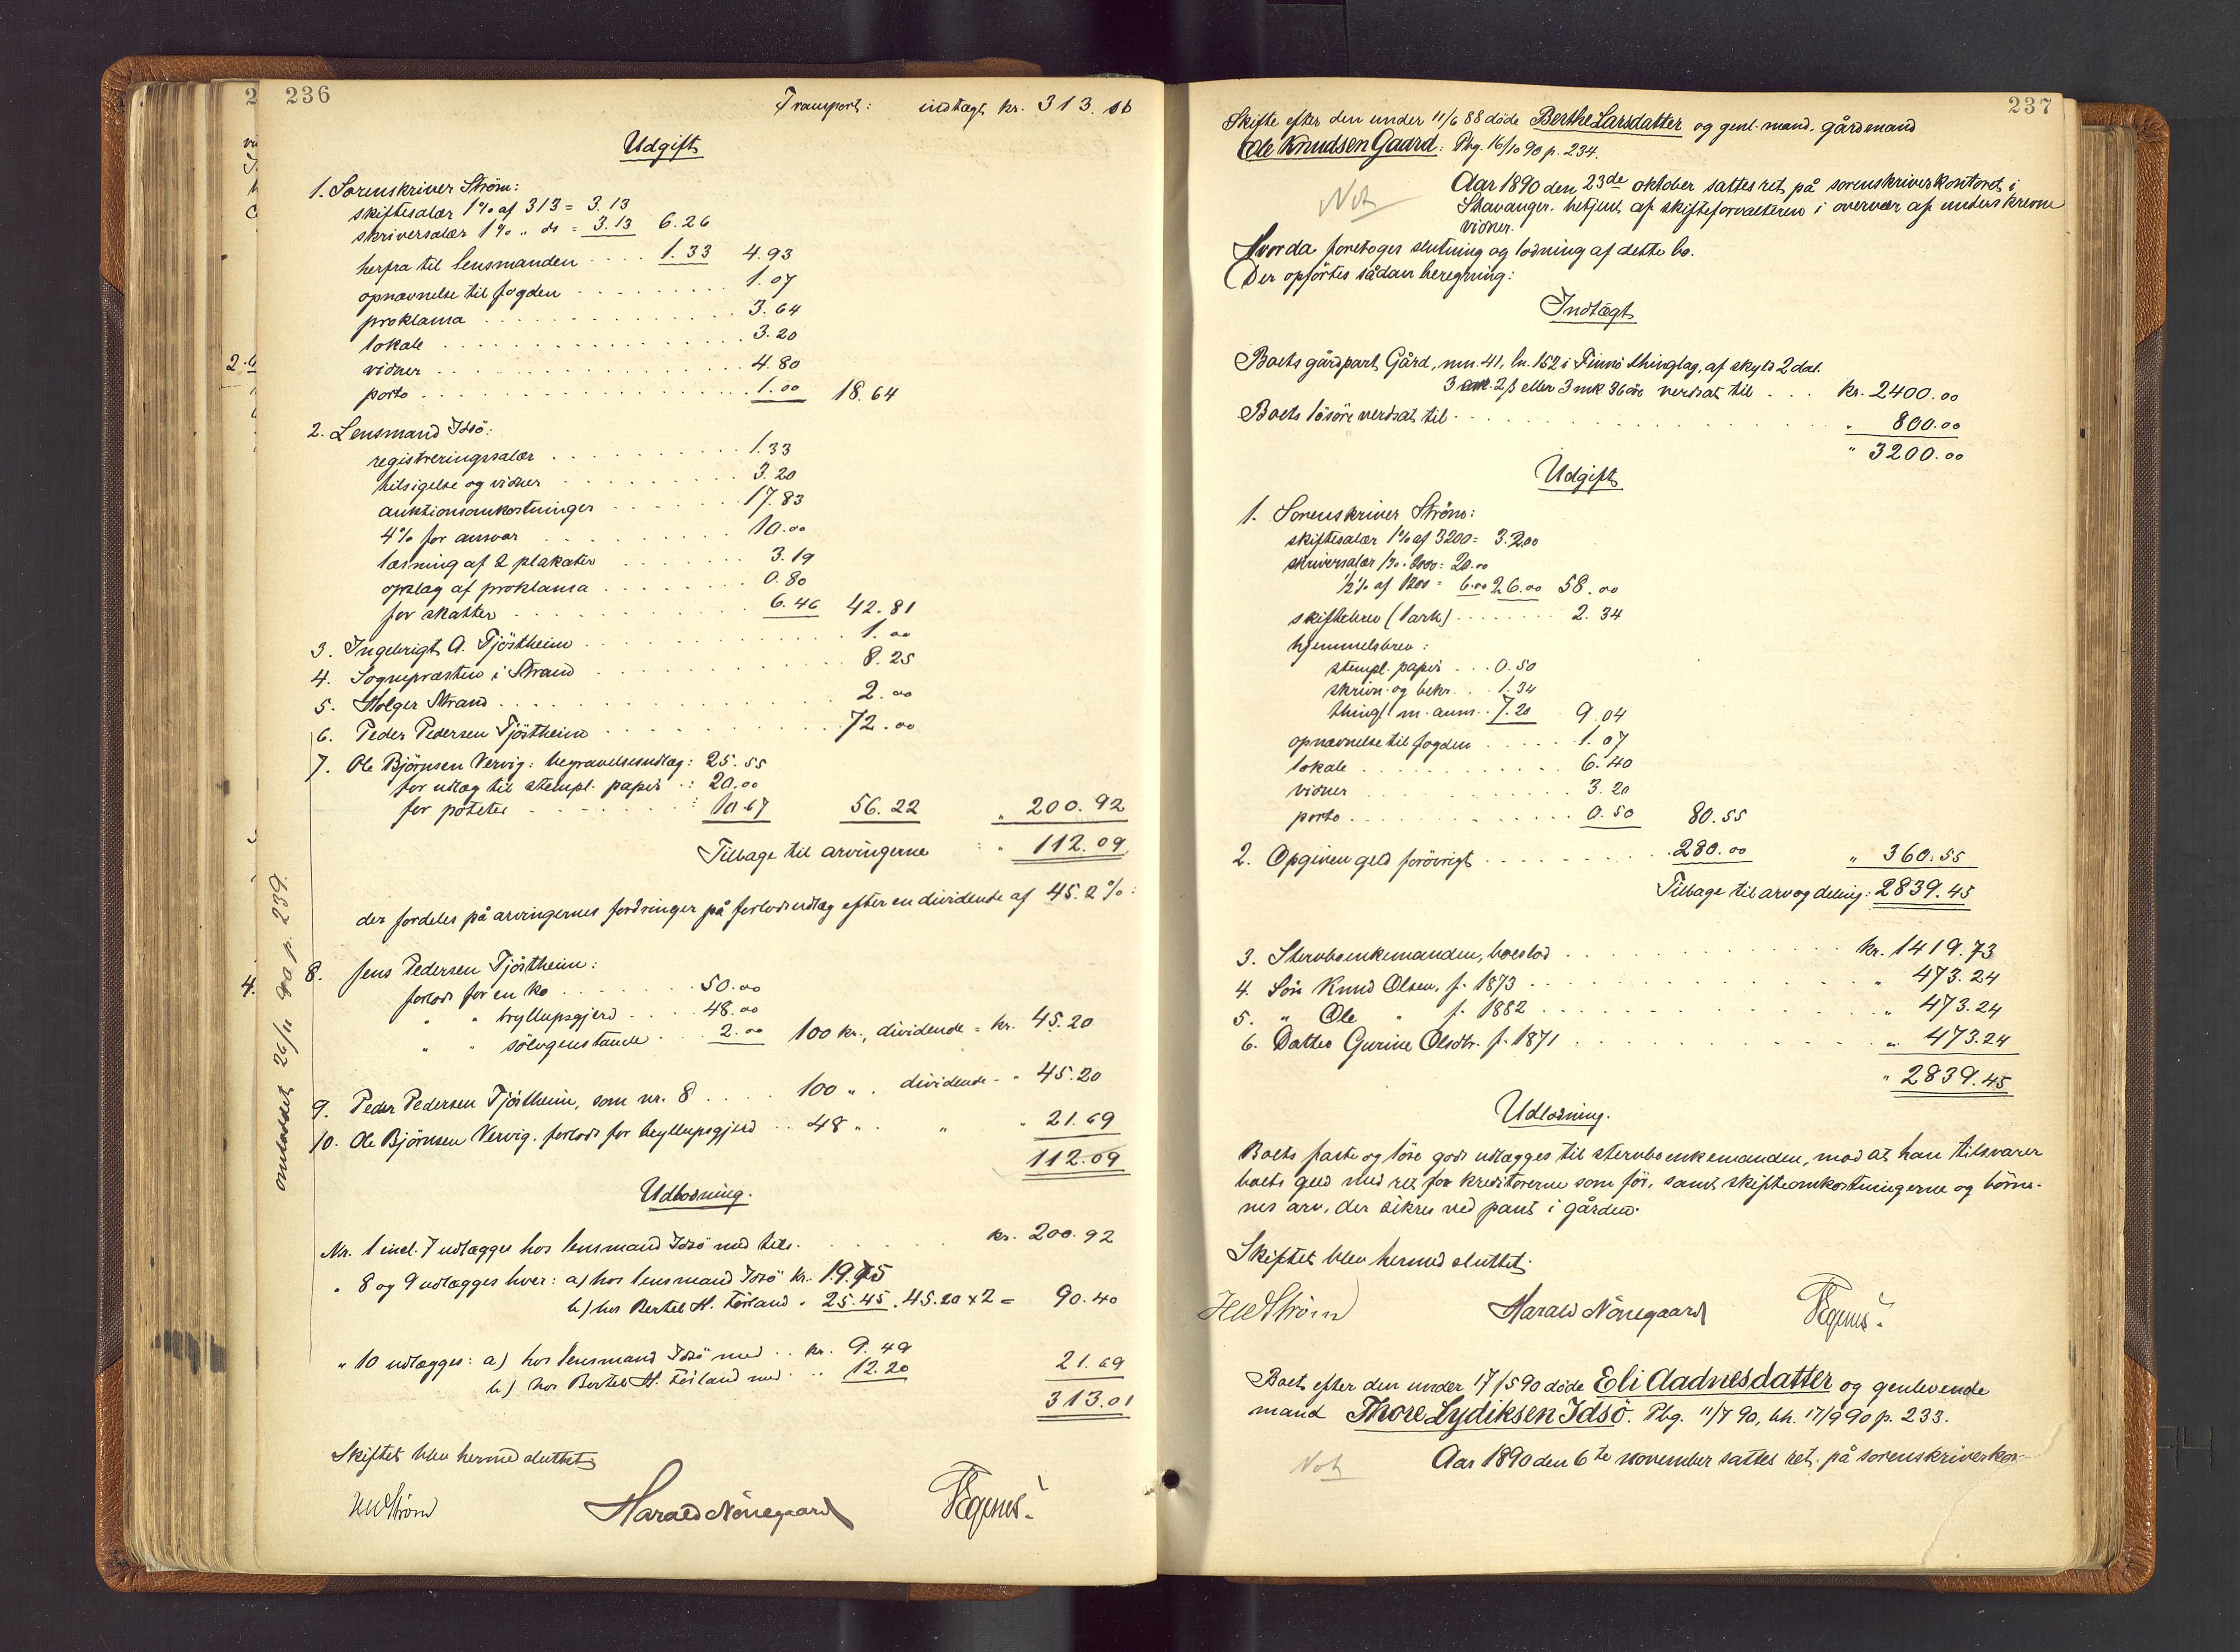 236
Transport: indtægt kr. 313.01
Udgift
1. Sorenskriver Strøm:
skiftesalær 1% af 313 = 3.13
skriversalær 1% " ds = 3.13 6.26
herfra til lensmanden 1.33 4.93
opnævnelse til fogden 1.07
proklama 3.64
lokale 3.20
vidner 4.80
porto 1.00 18.64
2. Lensmand Idsö:
registreringssalær 1.33
tilsigelse og vidner 3.20
auktionsomkostninger 17.83
4% for ansvar 10.00
læsning af 2 plakater 3.19
opslag af proklama 0.80
for skatter 6.46 42.81
3. Ingebrigt A. Tjöstheim 1.00
4. Sognepræsten i Strand 8.25
5. Holger Strand 2.00
6. Peder Pedersen Tjöstheim 72.00
7. Ole Björnsen Vervig: begravelsesudlæg: 25.55
for udlæg til stempl. papir : 20.00
for poteter : 10.67 56.22 " 200.92
Tilbage til arvingerne : " 112.09
der fordeles på arvingernes fordringer på forlodsudlæg efter en dividende af 45.2%:
8. Jens Pedersen Tjöstheim:
forlods for en ko 50.00
" " bryllupsgjerd 48.00
" " sölvgenstande 2.00 100 kr., dividende = kr. 45.20
9. Peder Pedersen Tjöstheim, som nr. 8 100 " . dividende - " 45.20
10. Ole Björnsen Vervig. forlods for bryllupsgjerd 48 " " " 21.69
112.09
Udlodning.
Nr. 1 incl. 7 udlægges hos lensmand Idsö med tils. kr. 200.92
" 8 og 9 udlægges hver: a) hos lensmand Idsö kr. 19.75
b) hos Bertel H. Förland " 25.45. 45.20 x 2 = 90.40
" 10 udlægges: a) hos lensmand Idsö med kr. 9.49
b) hos Bertel H. Förland med " 12.20 21.69
313.01
Skiftet blev hermed sluttet.
HWStrøm Harald Nönegaard
omloddet 26/11 90 p. 239.
237
Skifte efter den under 11/6 88 døde Berthe Larsdatter og genl. mand, gårdmand
Ole Knudsen Gaard: Pbg. 16/10 90 p. 234.
Not
Aar 1890 den 23de oktober sattes ret på sorenskriverkontoret i
Stavanger. betjent af skifteforvalteren i overvær af underskrevne
vidner.
Hvorda foretoges slutning og lodning af dette bo.
Der opførtes sådan beregning:
Indtægt
Boets gårdpart Gård, mn. 41, ln. 152 i Finnö thinglag, af skyld 2 dal.
3 ort 2 ß eller 3 mk 36 öre verdsat til kr. 2400.00
Boets lösöre verdsat til " 800.00
" 3200.00
Udgift
1. Sorenskriver Ström:
skiftesalær 1% af 3200 = 32.00
skriversalær 1% " 2000 = 20.00
½% af 1200 = 6.00 26.00 58.00
skiftebrev (1 ark) 2.34
hjemmelsbrev:
stempl. papir 0.50
skrivn. og bekr. 1.34
thingl. m. anm. 7.20 9.04
opnævnelse til fogden 1.07
lokale 6.40
vidner 3.20
porto 0.50 80.55
2. Opgiven gjeld forövrigt 280.00 " 360.55
Tilbage til arv og deling: 2839.45
3. Stervboenkemanden, boeslod kr. 1419.73
4. Sön Knud Olsen, f. 1873 " 473.24
5. " Ole " f. 1882 " 473.24
6. Datter Gurine Olsdtr. f. 1871 " 473.24
" 2839.45
Udlodning.
Boets faste og löse gods udlægges til stervboenkemanden, mod at han tilsvarer
boets gjeld med ret for kreditorerne som för, samt skifteomkostningerne og börne-
nes arv, der sikres ved pant i gården.
Skiftet blev hermed sluttet.
HWStrøm Harald Nönegaard
Boet efter den under 17/5 90 døde Eli Aadnesdatter og genlevende
mand Thore Lydiksen Idsö. Pbg. 11/7 90, bh. 17/9 90 p. 233.
Not
Aar 1890 den 6te november sattes ret på sorenskriverkon-